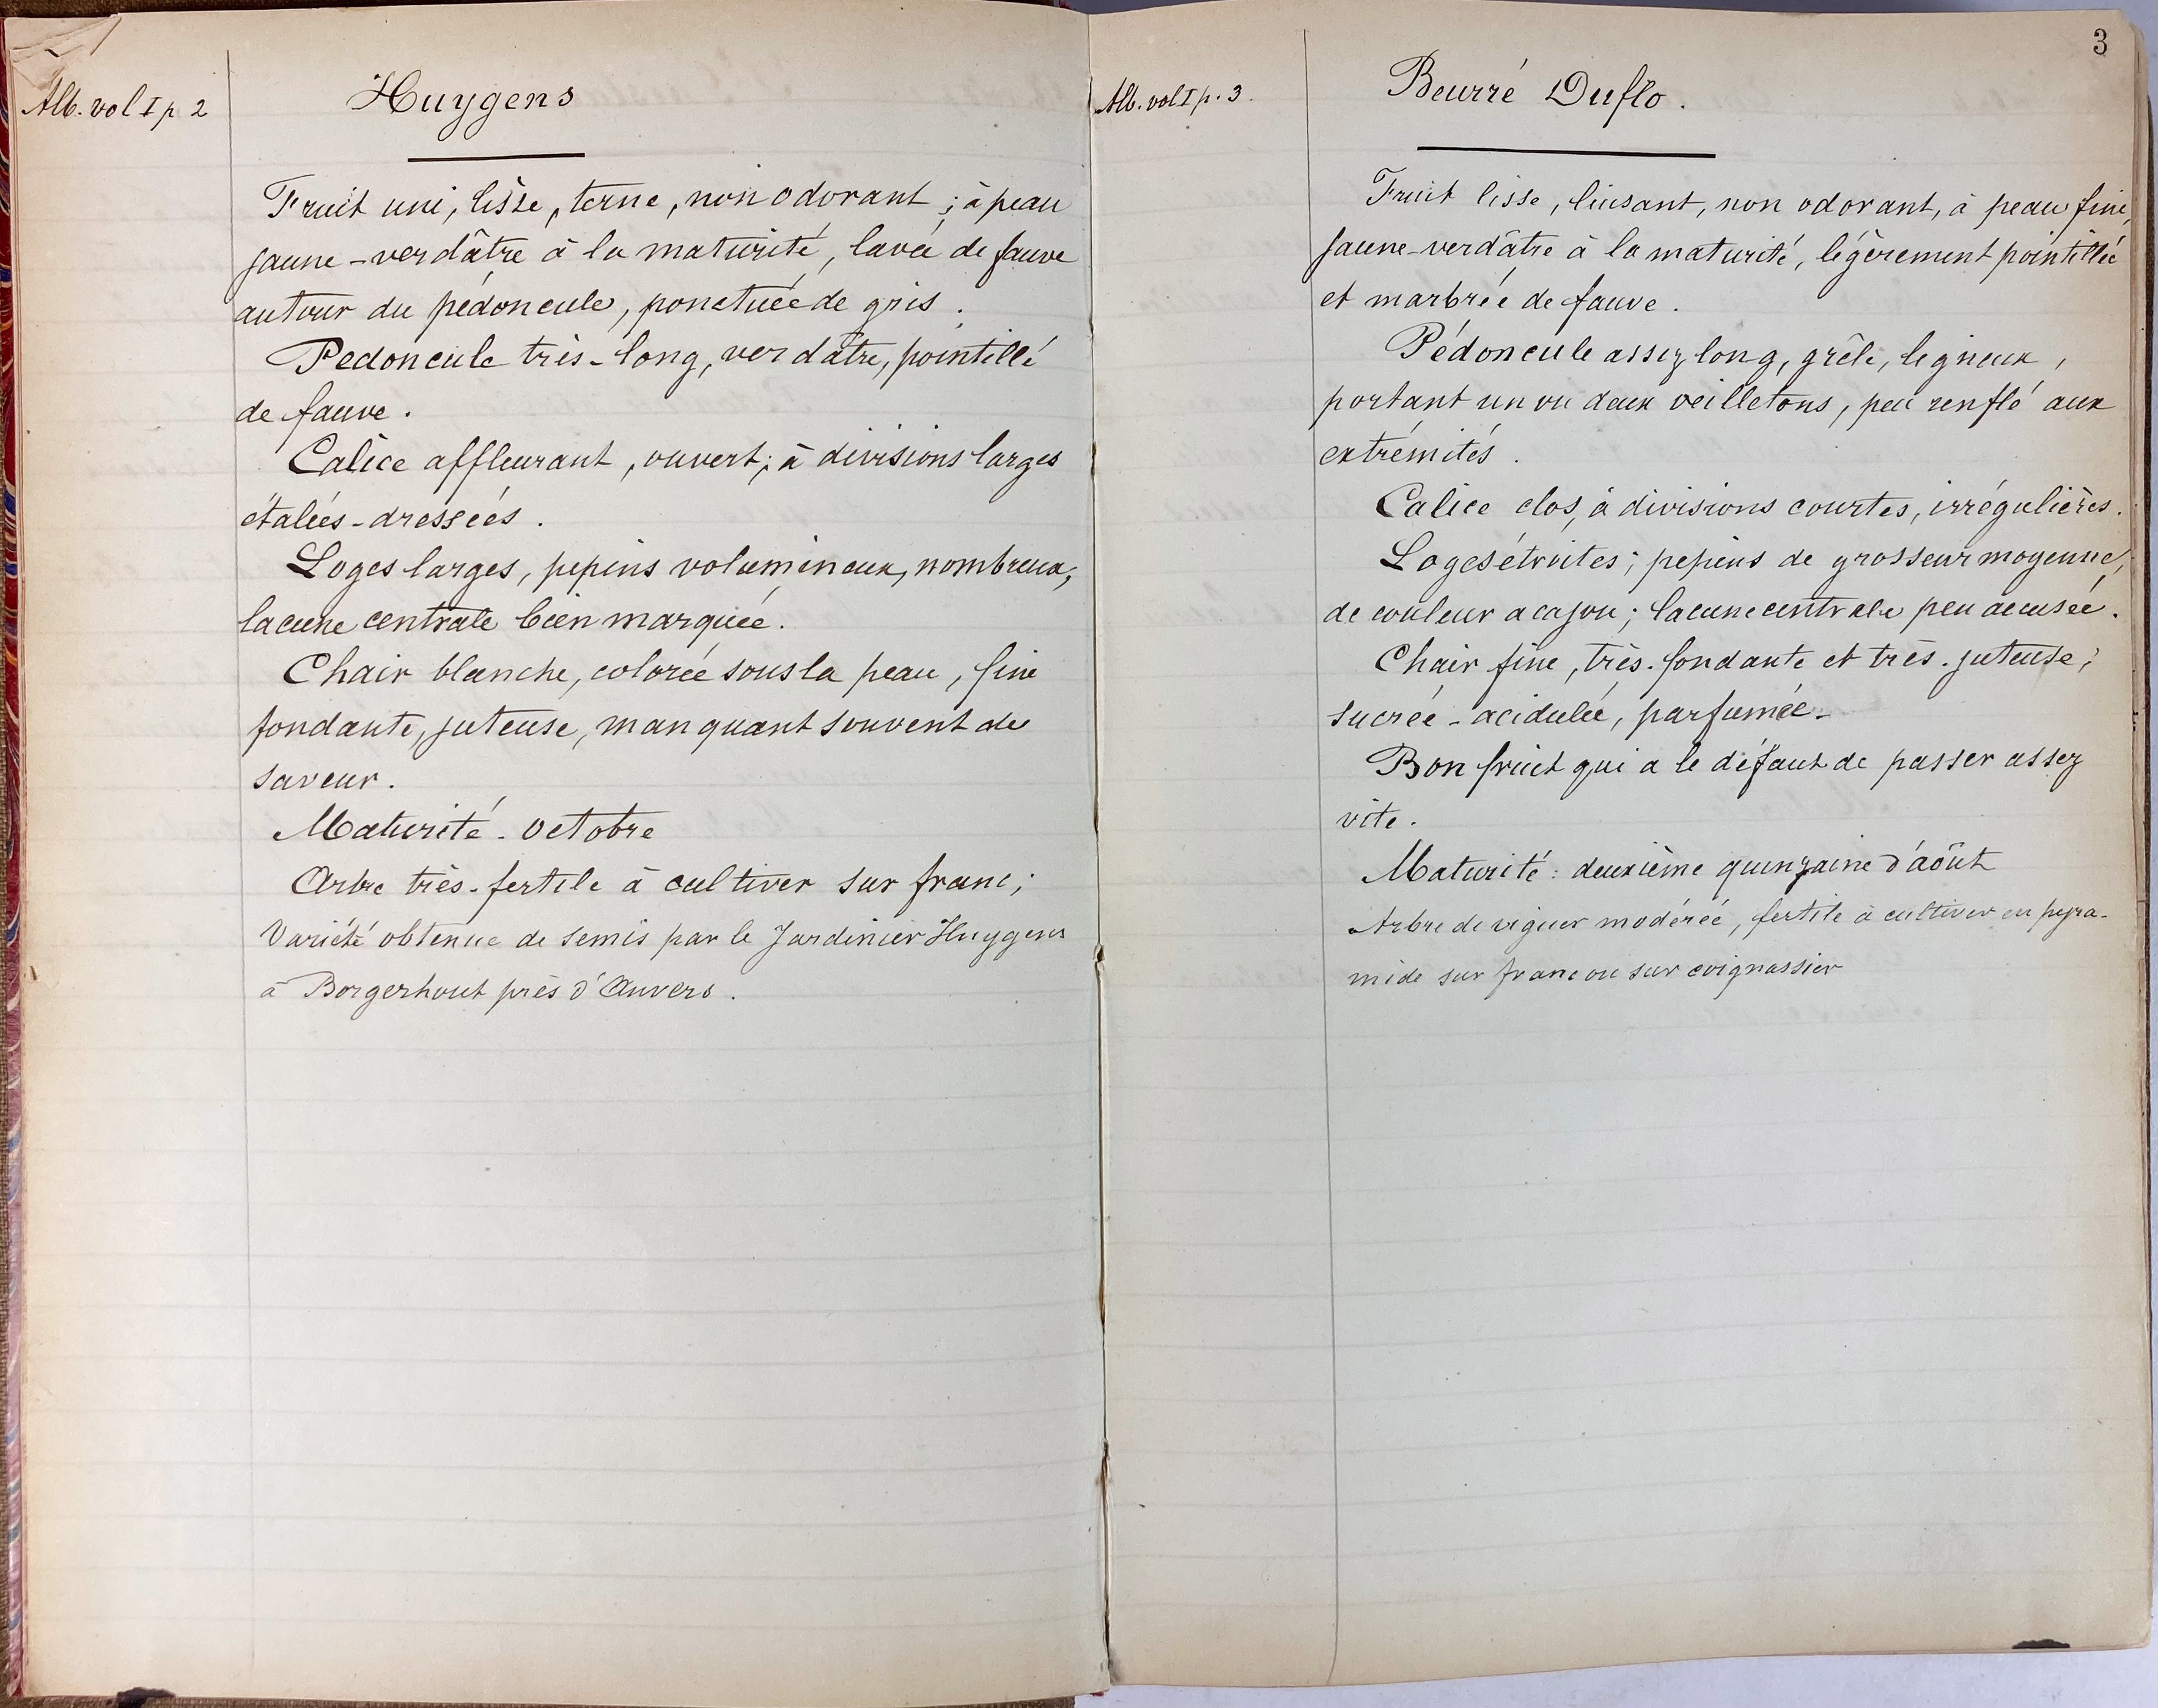 Alb. vol I p 2
Huygens
Fruit uni, lisse, terne, non odorant ; à peau
jaune-verdâtre à la maturité, lavée de fauve
autour du pédoncule, ponctuée de gris.
Pedoncule très-long, verdâtre, pointillé
de fauve.
Calice affleurant, ouvert ; à divisions larges
étalées-dressées.
Loges larges, pepins volumineux, nombreux,
lacune centrale bien marquée.
Chair blanche, colorée sous la peau, fine
fondante, juteuse, manquant souvent de
saveur.
Maturité - Octobre
Arbre très-fertile à cultiver sur franc ;
Variété obtenue de semis par le Jardinier Huygens
à Borgerhout près d'Anvers.
3
Alb. vol I p. 3.
Beurré Duflo.
Fruit lisse, luisant, non odorant, à peau fine,
jaune-verdâtre à la maturité, légèrement pointillée
et marbrée de fauve.
Pédoncule assez long, grêle, ligneux,
portant un ou deux oeilletons, peu renflé aux
extrémités.
Calice clos, à divisions courtes, irrégulières.
Loges étroites ; pepins de grosseur moyenne,
de couleur acajou ; lacune centrale peu accusée.
Chair fine, très-fondante et très-juteuse ;
sucrée-acidulée, parfumée-
Bon fruit qui a le défaut de passer assez
vite.
Maturité : deuxième quinzaine d'aôut
Arbre de viguer modérée, fertile à cultiver en pyra-
mide sur franc ou sur coignassier